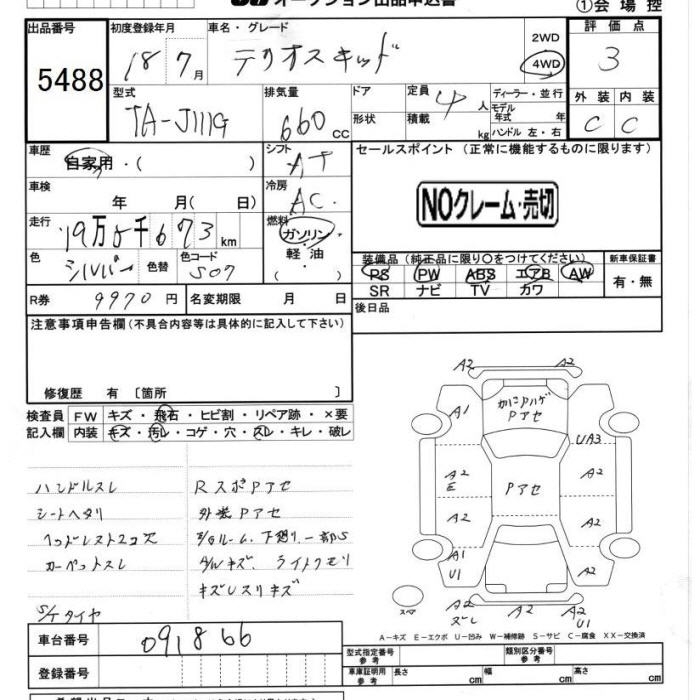 オークション出品申込書
①会場控
出品番号
5488
初度登録年月
18 7月
車名・グレード
テリオスキッド
2WD
4WD
評価点
3
型式
TA-J111G
排気量
660 cc
ドア
形状
定員 4 人
積載 kg
ディーラー・並行
モデル年式 年
ハンドル 左・右
外装 内装
C C
車歴
自家用・( )
シフト
AT
セールスポイント(正常に機能するものに限ります)
NOクレーム・売切
車検
年 月( 日)
冷房
AC.
走行
19万5千673 km
燃料
ガソリン・軽油
色
シルバー
色替
色コード
S07
装備品(純正品に限り〇をつけてください)
PS PW ABS エアB AW
SR ナビ TV カワ
新車保証書
有・無
R券 9970円
名変期限 月 日
後日品
注意事項申告欄(不具合内容等は具体的に記入して下さい)
修復歴 有 〔箇所 〕
検査員記入欄
FW キズ・飛石・ヒビ割・リペア跡・×要
内装 キズ・汚レ・コゲ・穴・スレ・キレ・破レ
ハンドルスレ
シートヘタリ
ヘッドレスト2コ欠
カーペットスレ
S/Tタイヤ
RスポPアセ
外装Pアセ
下廻リ一部S
ライトクモリ
キズUスリキズ
A2 A2
A1
Pアセ
UA3
A2
E
Pアセ
A2
A2
A2
A1
U1
A2
スペア
A2
ズレ
A2
U1
A-キズ E-エクボ U-凹み W-補修跡 S-サビ C-腐食 XX-交換済
車台番号
091866
登録番号
型式指定番号 参考
類別区分番号 参考
車庫証明用 参考
長さ cm 幅 cm 高さ cm